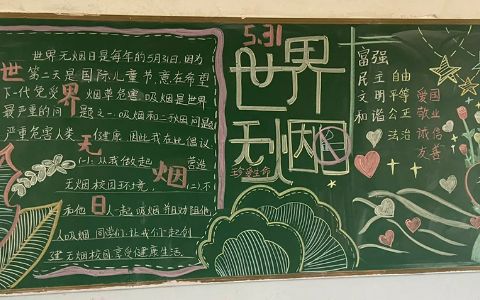 世界无烟日是每年的5月31日,因为
第二天是国际儿童节,意在希望
下一代免受烟草危害。吸烟是世界
最严重的问题之一,吸烟和二秋烟问题
严重危害人类健康,因此我在此倡议:
(一)从我做起 营造
无烟校园环境, (二)不
和他人一起吸烟并且对阻他
人吸烟 同学们,让我们一起创
建无烟校园享受健康生活。
世界无烟日
5.31
世界
无烟日
珍爱生命
富强
民主 自由
文明 平等 爱国
和谐 公正 敬业
法治 诚信
友善